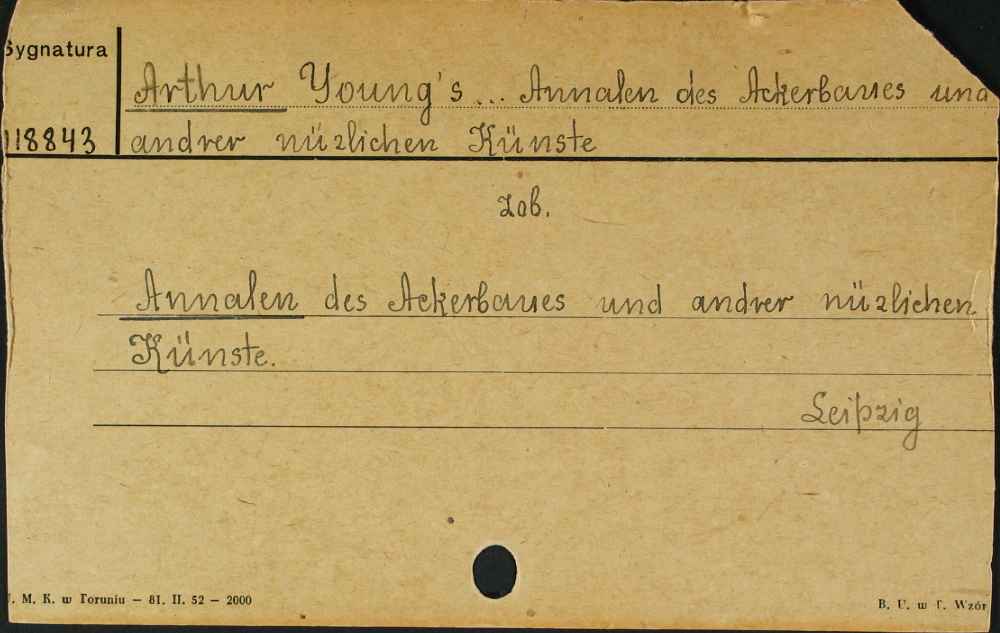 Sygnatura
Arthur Young's ... Annalen des Ackerbaues und
118843 andrer nüzlichen Künste
zob.
Annalen des Ackerbaues und andrer nüzlichen
Künste.
Leipzig
. M. K. w Toruniu — 81. II. 52 — 2000
B. U. w T. Wzór